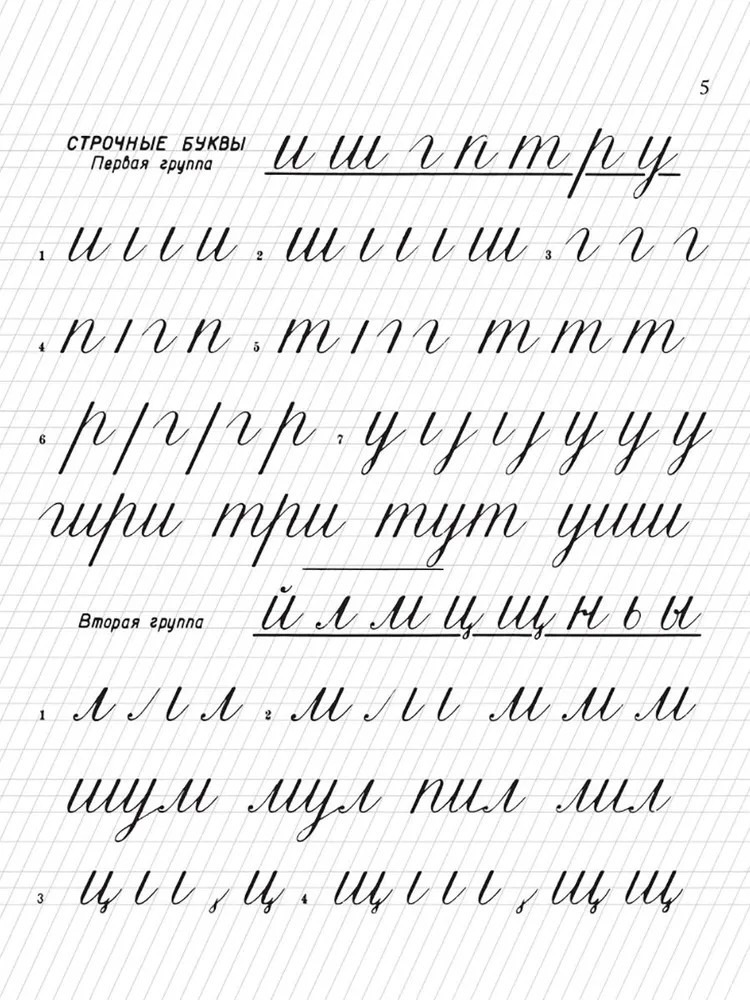 5
СТРОЧНЫЕ БУКВЫ и ш г п т р у
Первая группа
1 и и 2 ш ш 3 г г г
4 п г п 5 т г т т т
6 р г г р 7 у у у у
гири три тут уши
Вторая группа й л м ц щ н ь ы
1 л л 2 м м м м
шум мул пил мил
3 ц ц 4 щ щ щ